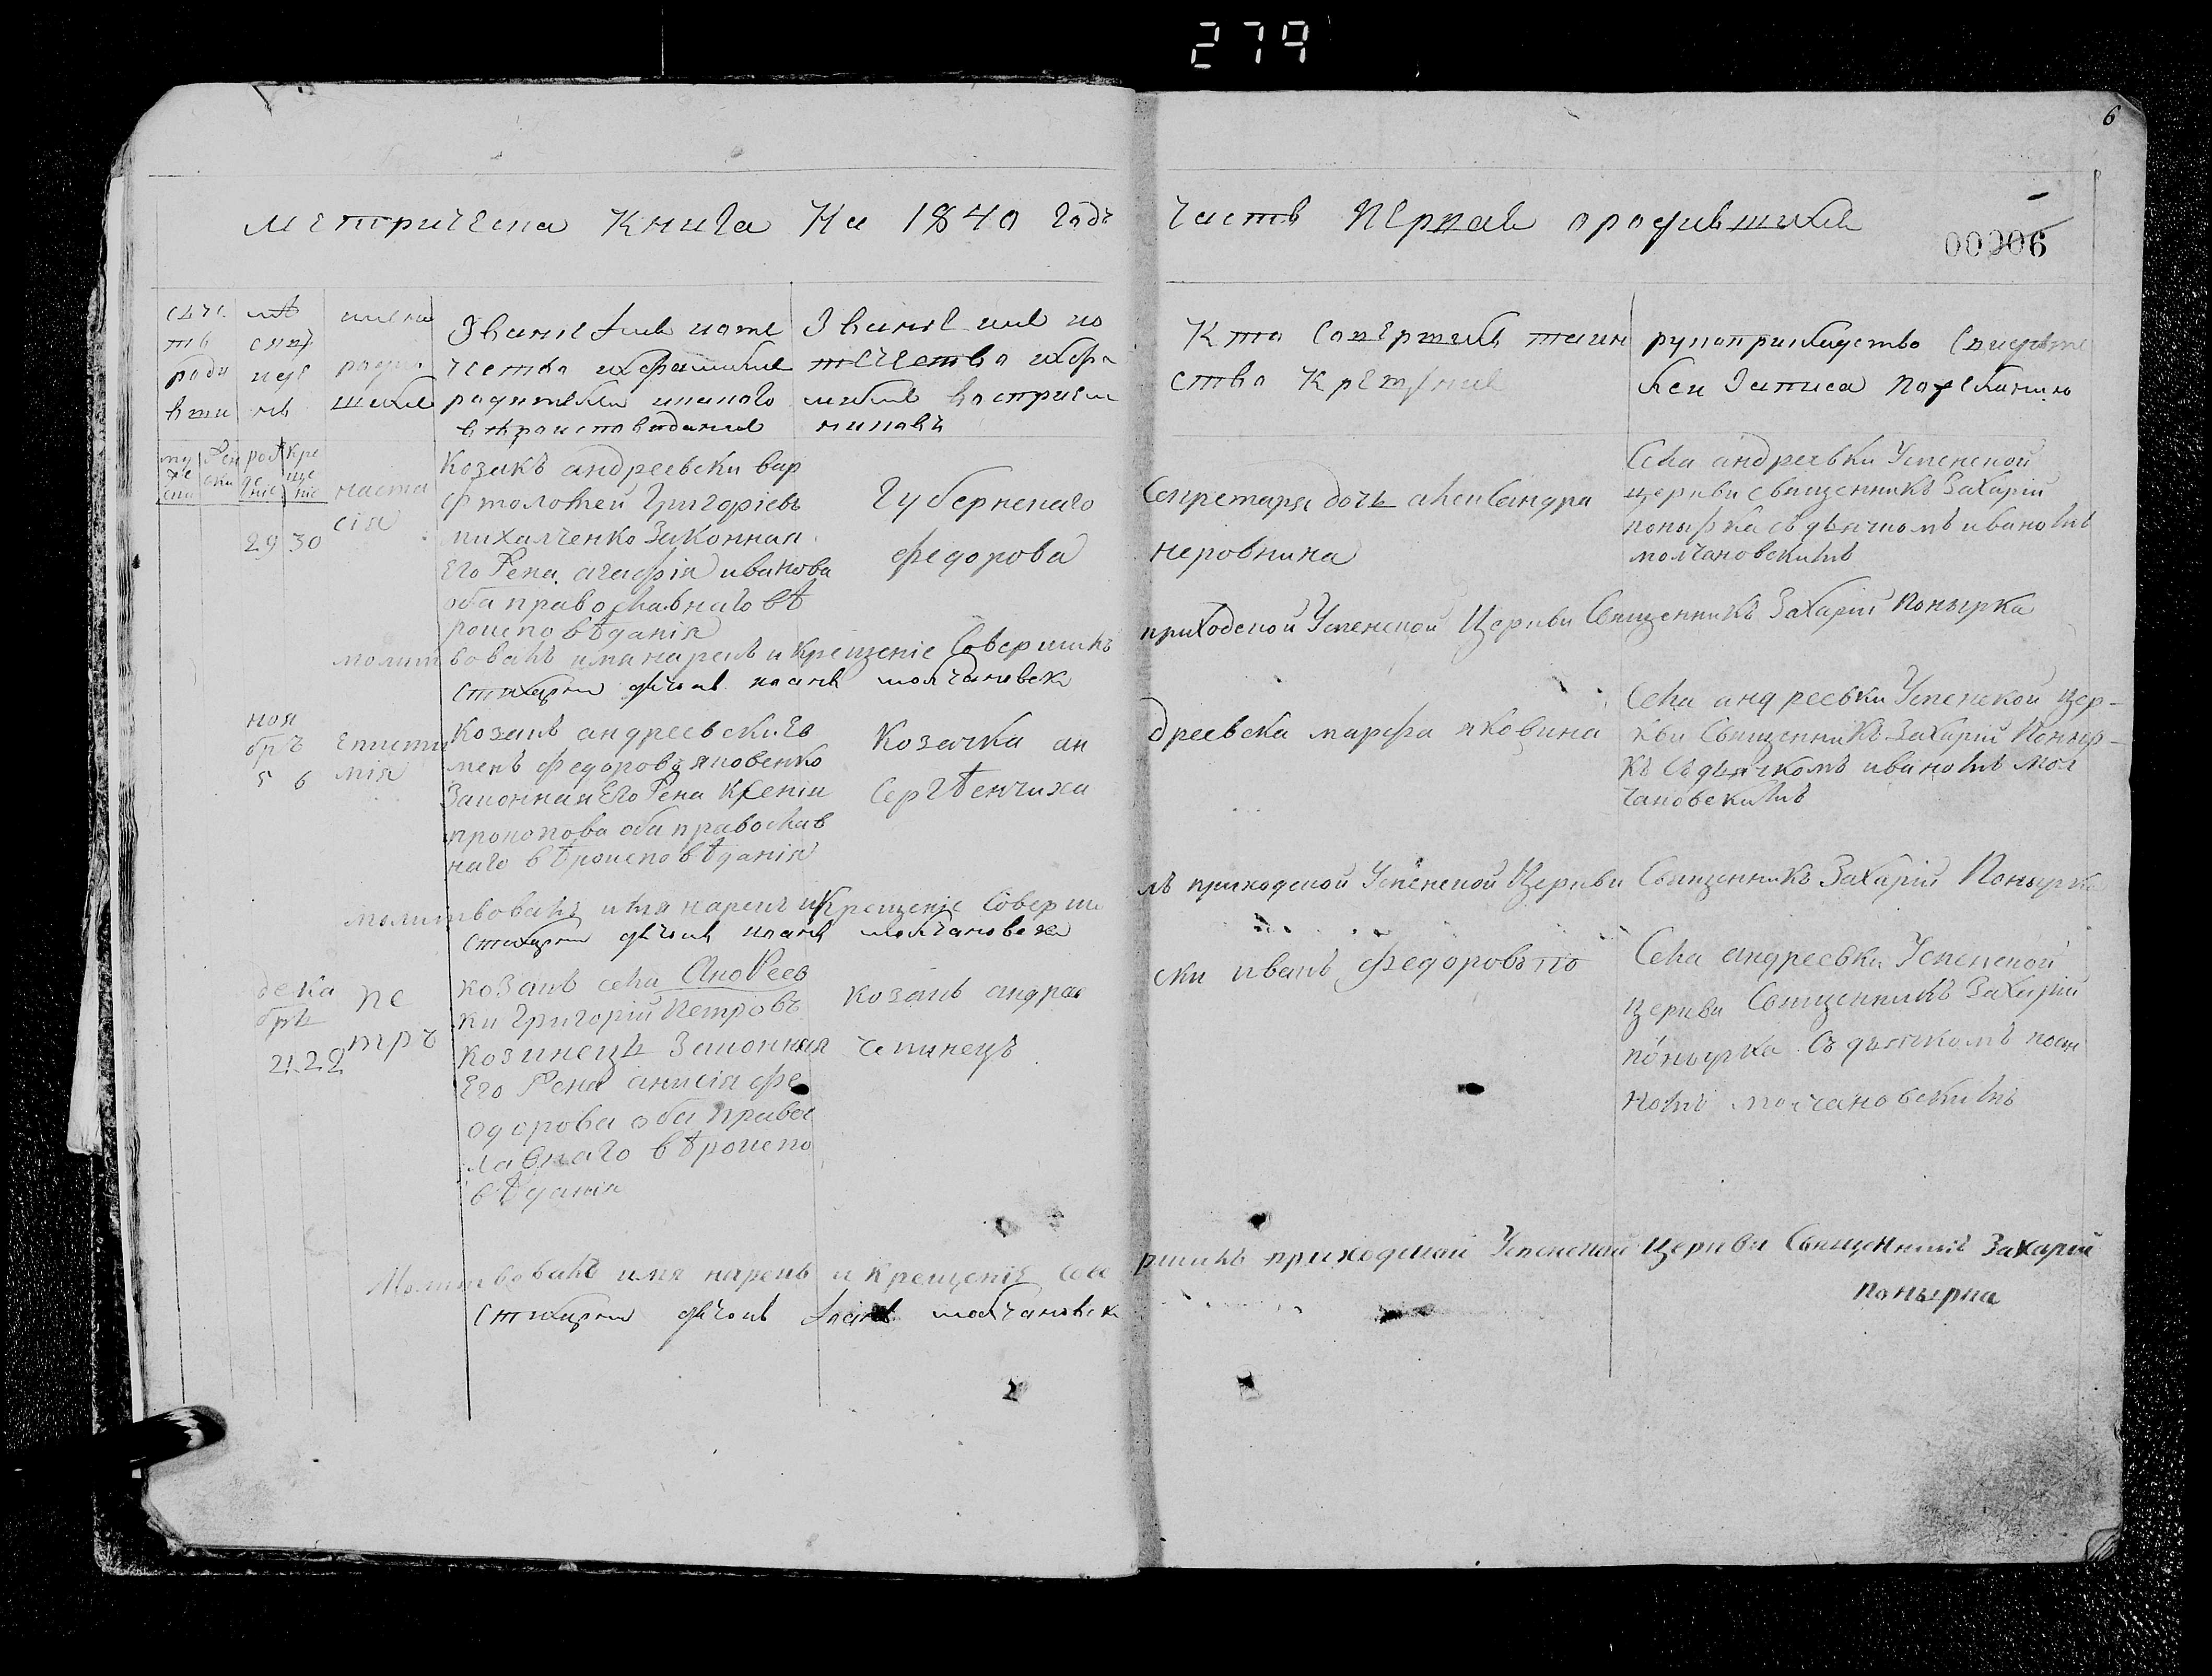 279
6
метричена Книга На 1840 годъ
часть Первая о родившихся
00006
счетъ родившихся
месяцъ и день
имена родившихся
Званіе имя иоте
чество и фамилія
родителей и какого
вѣроисповеданія
Званіе имя ио
течество и фа
милія восприем
никовъ
Кто Совершилъ таин
ство Крещенія
рукоприкладство Свидѣте
лей записа по желанию
муже ска
Жен ска
рожде ніе
Кре ще ніе
29 30
наста
сія
Козакъ андреевски вар
фтоломей Григоріевъ
михалченко Законная
Его Жена агафія иванова
оба православнаго вѣ
роиспо вѣданія
Губернскаго
федорова
Секретаря дочь александра
неровнина
Села андреевки Успенской
церкви священникъ Захарій
понырка съ дьячкомъ иваномъ
молчановскимъ
молитвовалъ имя нарекъ и Крещеніе Совершилъ приходской Успенской Церкви Священникъ Захарій Понырка
стихарни дячокъ иоанъ молчановски
ноя
бръ
5 6
Еписти
мія
Козакъ андреевски Ев
менъ федоровъ яковенко
Законная Его Жена Ксенія
прокопова оба православ
наго вѣроиспо вѣданія
Козачка ан
Сергѣенчиха
дреевска марфа яковина
Села андреевки Успенской цер-
кви Священникъ Захарій Поныр-
къ Съ дьячкомъ иваномъ Мол
чановскимъ
молитвовалъ имя нарекъ и Крещеніе Соверши лъ приходской Успенской Церкви Священникъ Захарій Понырка
стихарни дячокъ иоанъ молчановски
дека
брь
21 22
Пе
тръ
козакъ села Андреев
ки Григорій Петровъ
Козинецъ Законная
Его Жена анисія фе
одорова оба правос
лавнаго вѣроиспо
вѣданія
козакъ андрее
чепинецъ
ски иванъ федоровъ по
Села андреевки Успенской
церкви Священникъ Захарій
понырка Съ дьячкомъ иоан
номъ молчановскимъ
Молитвовалъ имя нарекъ и Крещеніе Сове ршилъ приходской Успенской церкви Священникъ Захарій
понырка
стихарни дячокъ Іоанъ молчановски